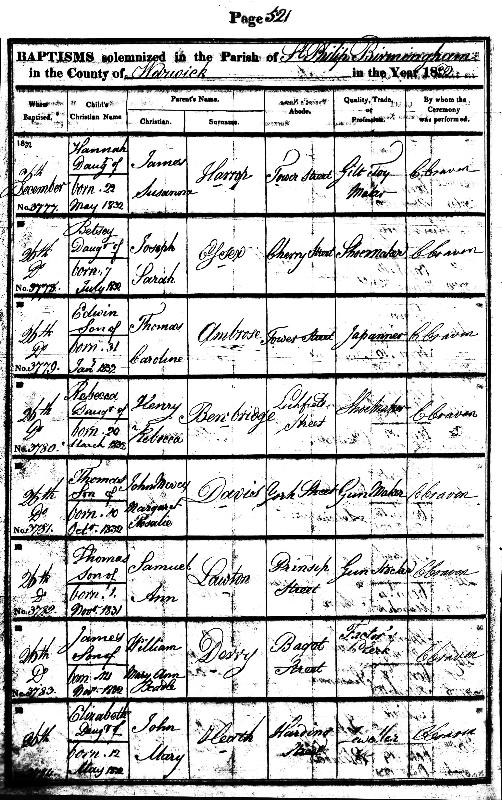 Page 521
BAPTISMS solemnized in the Parish of St. Philip Birmingham
in the County of Warwick in the Year 1832
When Baptized. Child's Christian Name Parent's Name. Christian. Surname. Abode. Quality, Trade, or Profession. By whom the Ceremony was performed.
1832
26th December No. 3777. Hannah Daugr of born 22 May 1832 James Susanna Harrop Tower Street Gilt Toy Maker C Craven
26th Do No. 3778. Betsey Daugr of born 7 July 1832 Joseph Sarah Cherry Street Shoemaker C Craven
26th Do No. 3779. Edwin Son of born 31 Jany 1832 Thomas Caroline Ambrose Tower Street Japanner C Craven
26th Do No. 3780. Rebecca Daugr of born 20 March 1832 Henry Rebecca Bembridge Street Shoemaker C Craven
26th Do No. 3781. Thomas Son of born 10 Octr 1832 John Margaret Rosalie Davis York Street Gun Maker C Craven
26th Do No. 3782. Thomas Son of born 1 Novr 1831 Samuel Ann Lawton Prinsip Street Gun Stocker C Craven
26th Do No. 3783. James Son of born 21 Novr 1832 William Mary Ann Derry Bagot Street Factor's Clerk C Craven
26th Elizabeth Daugr of born 12 May 1832 John Mary Harding Street C Craven